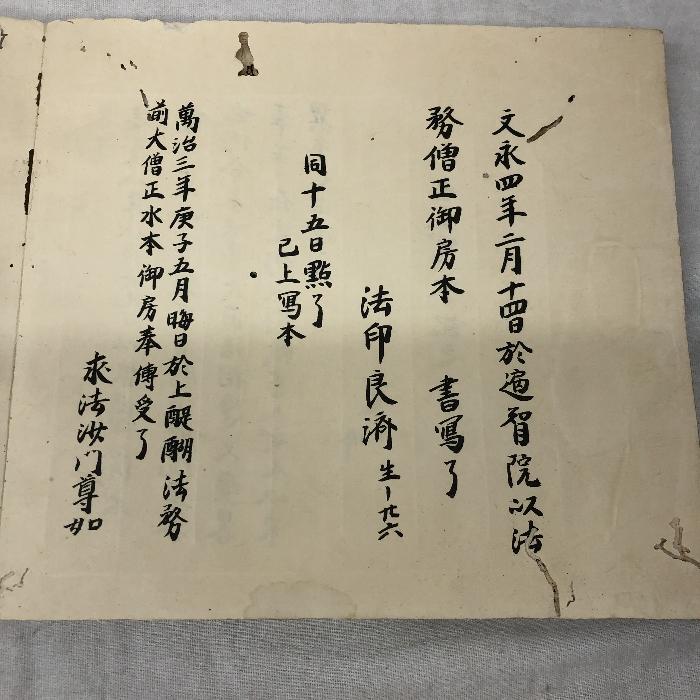 文永四年二月十四日於遍智院以法
務僧正御房本 書寫了
法印良濟生一廿六
同十五日點了
已上寫本
萬治三年庚子五月晦日於上醍醐法務
前大僧正水本御房奉傳受了
求法沙門尊如